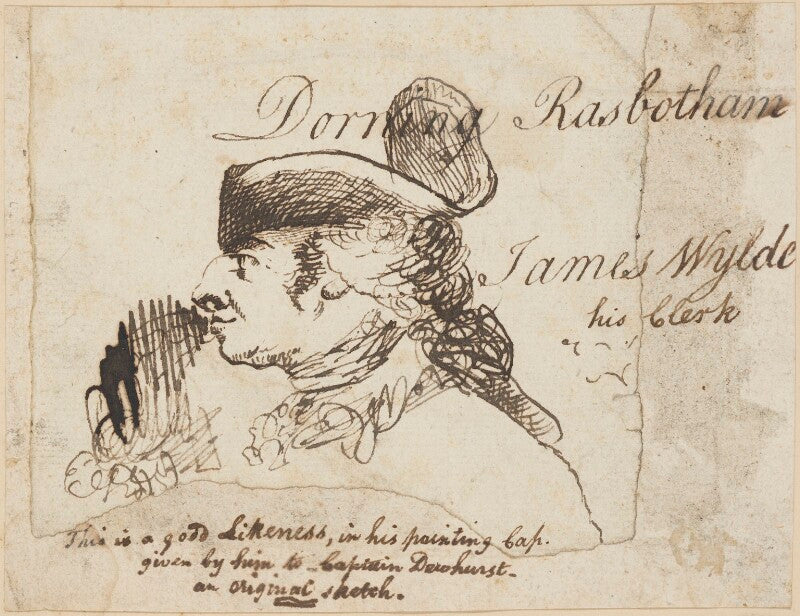 Dorning Rasbotham
James Wylde
his Clerk
This is a good Likeness, in his painting Cap.
given by him to Captain Dewhurst-
an original sketch.